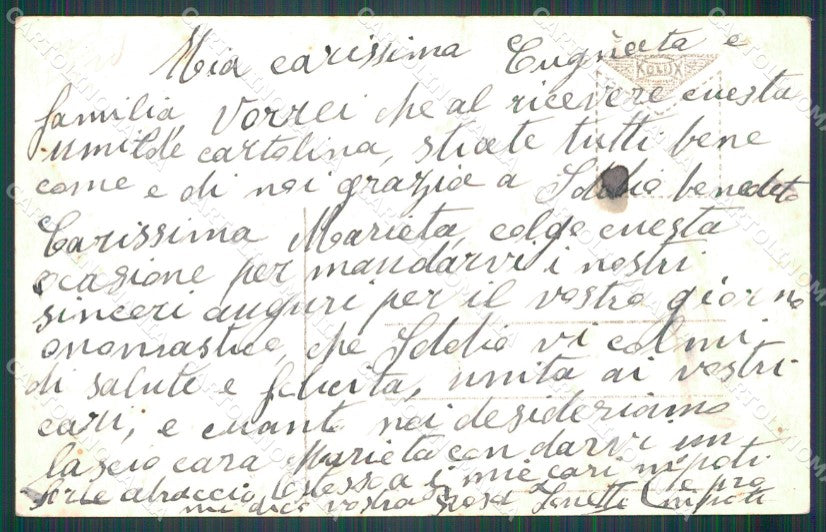 Mia carissima Cugneta e
KOLUX
familia, Vorrei che al ricevere cuesta
umilde cartolina, stiate tutti bene
come e di noi grazia a Iddio benedeto
Carissima Marieta, colgo cuesta
ocasione per mandarvi i nostri
sinceri auguri per il vostro giorno
onomastico, che Iddio vi colmi
di salute e felicita, unita ai vostri
cari, e cuanto noi desideriamo
lascio cara Marieta con darvi un
forte abraccio, lo stesso a i miei cari nipoti
mi dico vostra